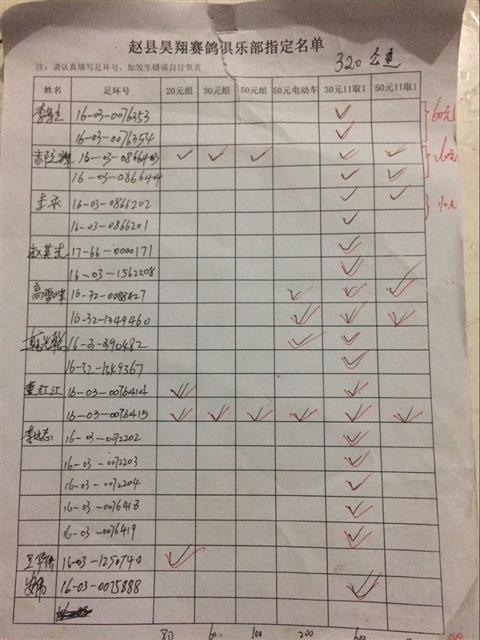 赵县昊翔赛鸽俱乐部指定名单
320公里
注：请认真填写足环号，如发生错误自行负责
姓名 足环号 20元组 30元组 50元组 50元电动车 30元11取1 50元11取1
16-03-0076353 ✓ 60元
16-03-0076354 ✓
16-03-0866403 ✓ ✓ ✓ ✓ ✓
16-03-0866404 ✓ ✓
16-03-0866202 ✓ ✓
16-03-0866201 ✓
17-66-0000171 ✓
16-03-1562208 ✓
16-32-0088427 ✓ ✓ ✓
16-32-1349460 ✓ ✓ ✓
✓ ✓
16-32-1349367 ✓
董红江 16-03-0076414 ✓ ✓
16-03-0076415 ✓ ✓ ✓ ✓ ✓ ✓
16-03-0072202 ✓
16-03-0072203 ✓
16-03-0072204 ✓
16-03-0076418 ✓
16-03-0076419 ✓
16-03-1250740 ✓
16-03-0075888 ✓
80 60 100 200